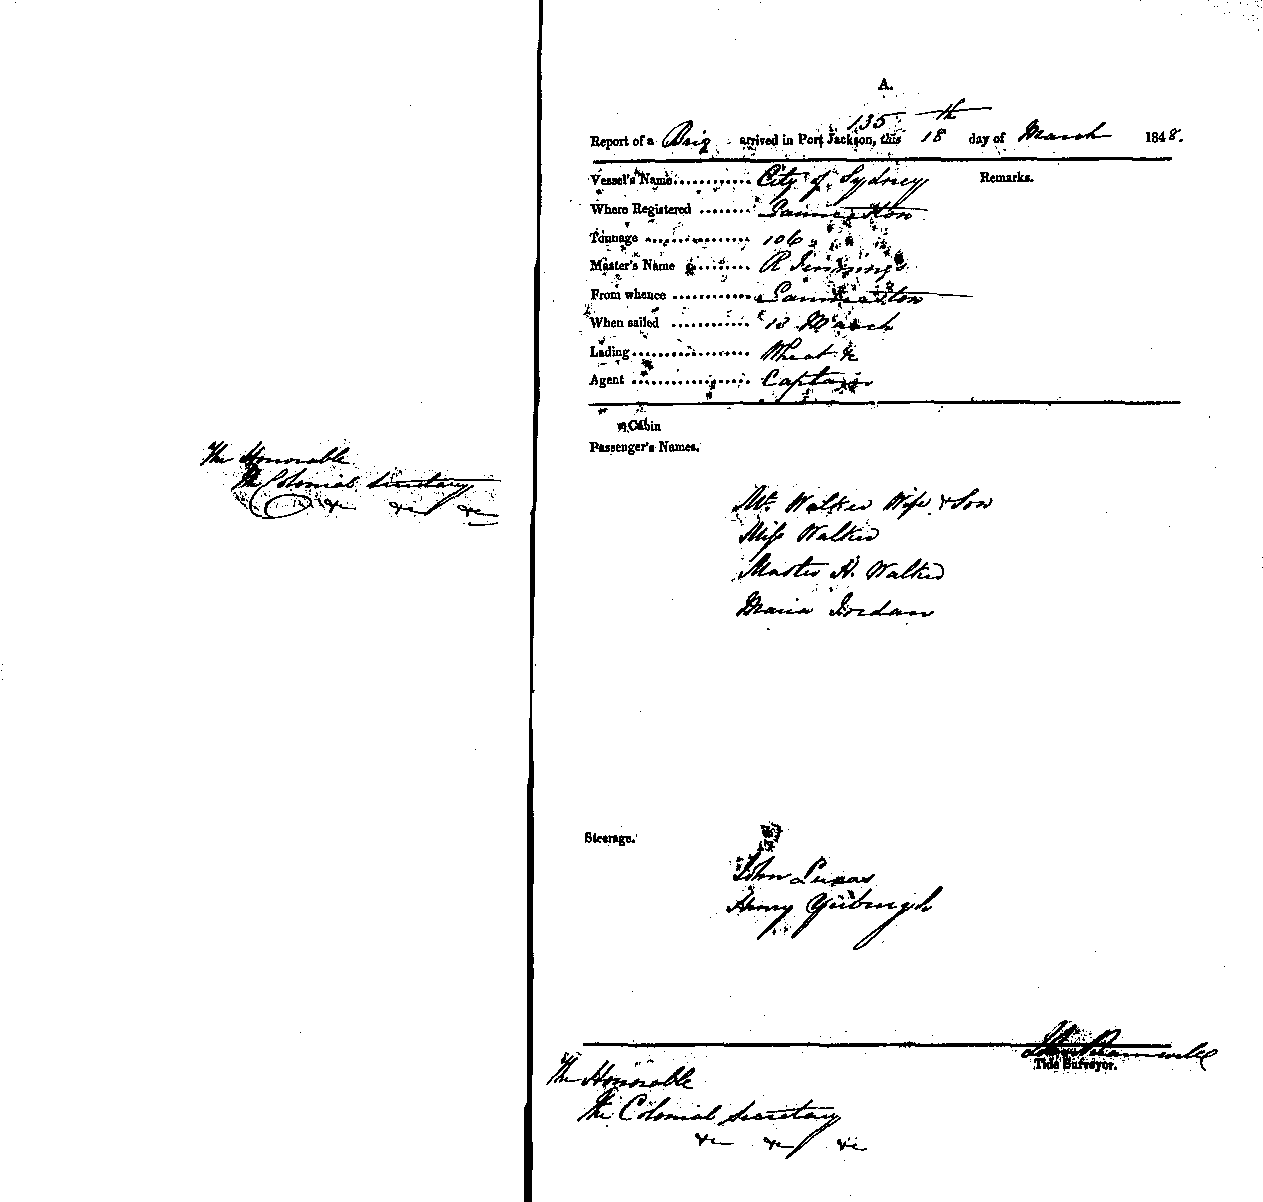 The Honorable
The Colonial Secretary
&c &c &c
A.
135
Report of a Brig arrived in Port Jackson, this 18th day of March 1848.
Vessel's Name............ City of Sydney Remarks.
Where Registered ........ Launceston
Tonnage ................ 106
Master's Name .......... R Jennings
From whence ............ Launceston
When sailed ............ 13 March
Lading.................. Wheat &c
Agent .................. Captain
Cabin
Passenger's Names.
Mr. Walker Wife & Son
Miss Walker
Master H. Walker
Maria Jordan
Steerage.
John Lucas
Henry
John
Tide Surveyor.
The Honorable
The Colonial Secretary
&c &c &c